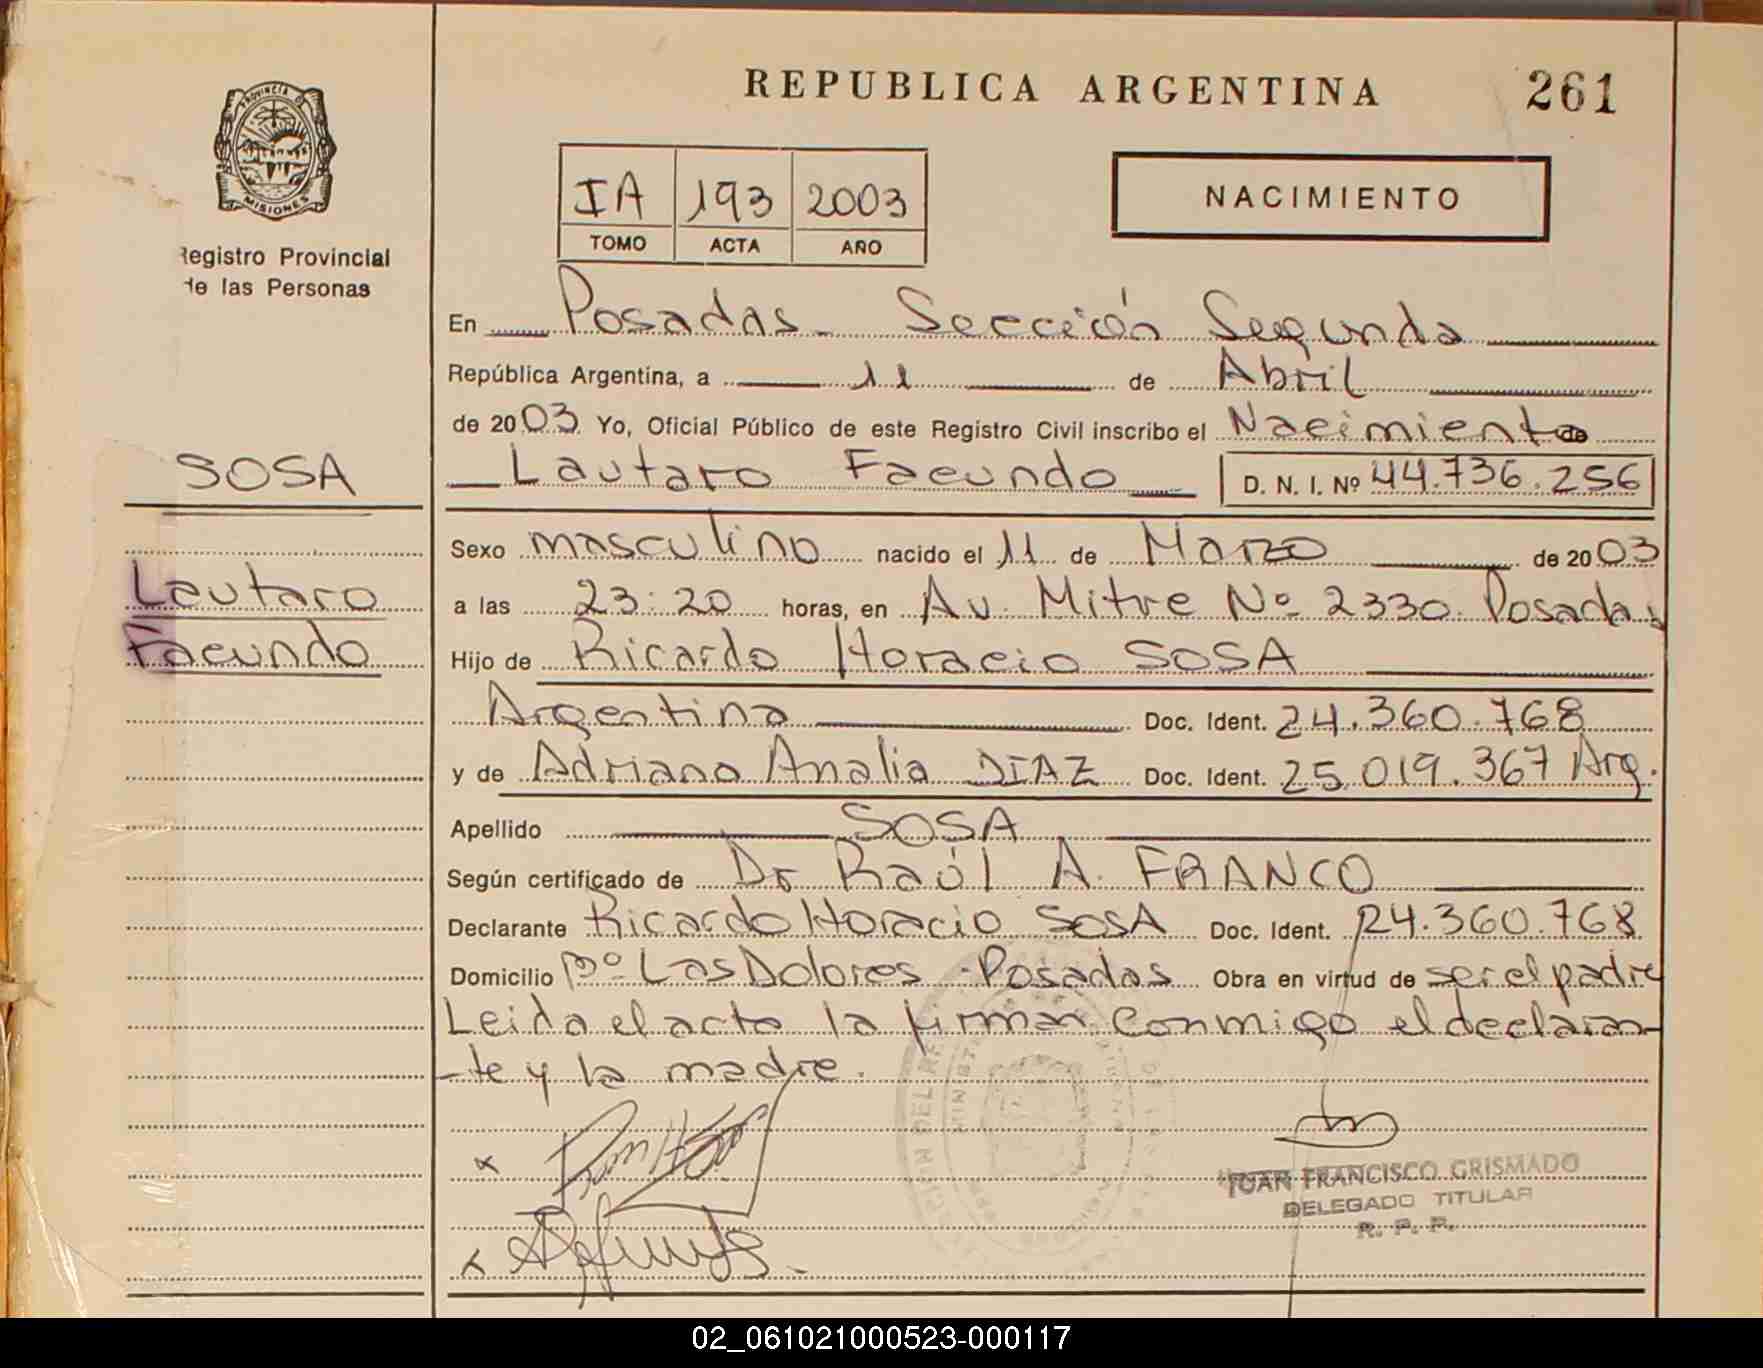 REPUBLICA ARGENTINA
261
PROVINCIA DE
MISIONES
Registro Provincial
de las Personas
IA 193 2003
TOMO ACTA AÑO
NACIMIENTO
En Posadas - Sección Segunda
República Argentina, a 11 de Abril
de 2003 Yo, Oficial Público de este Registro Civil inscribo el Nacimiento de
Lautaro Facundo D. N. I. Nº 44.736.256
SOSA
Lautaro
Facundo
Sexo masculino nacido el 11 de Marzo de 2003
a las 23:20 horas, en Av. Mitre Nº 2330. Posadas
Hijo de Ricardo Horacio SOSA
Argentina Doc. Ident. 24.360.768
y de Adriana Analia DIAZ Doc. Ident. 25.019.367 Arg.
Apellido SOSA
Según certificado de Dr Raúl A. FRANCO
Declarante Ricardo Horacio SosA Doc. Ident. 24.360.768
Domicilio Bº Las Dolores - Posadas Obra en virtud de ser el padre
Leida el acta la firman conmigo el declaran-
-te y la madre.
JUAN FRANCISCO GRISMADO
DELEGADO TITULAR
R. P. P.
02_061021000523-000117